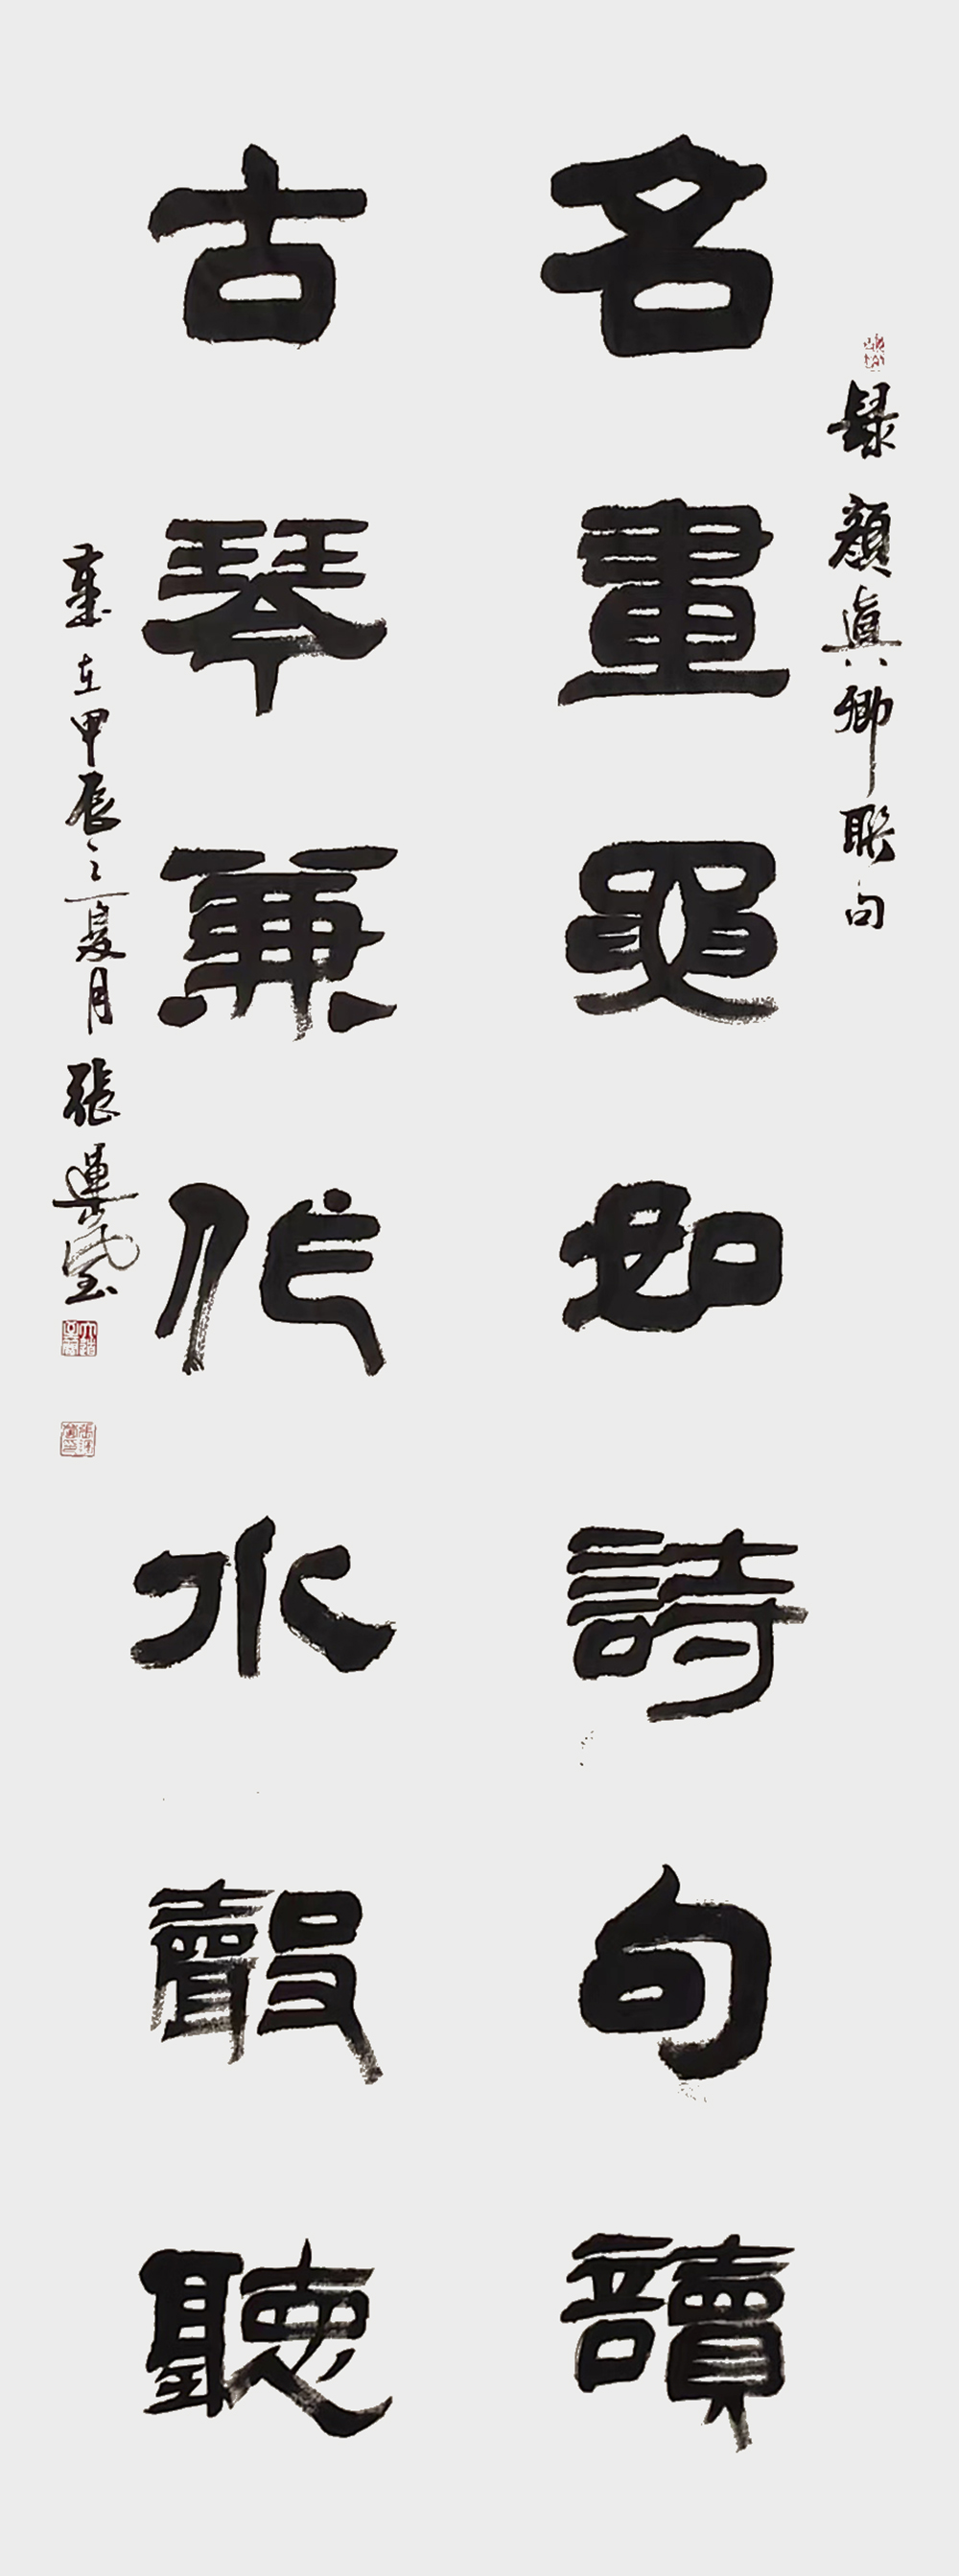 錄顏眞卿聯句
名畫要如詩句讀
古琴兼作水聲聽
歲在甲辰之夏月張運